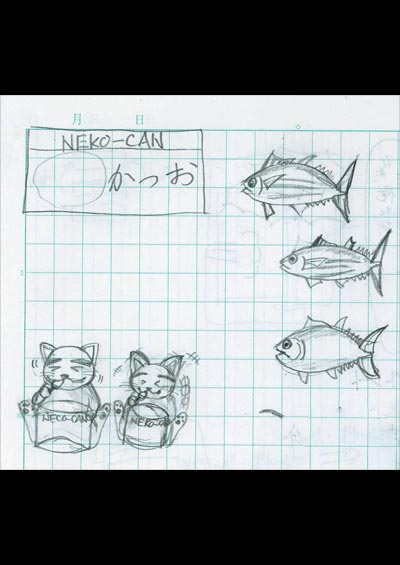 月 日
NEKO-CAN
かつお
NECO-CAN
NEKO-CAN